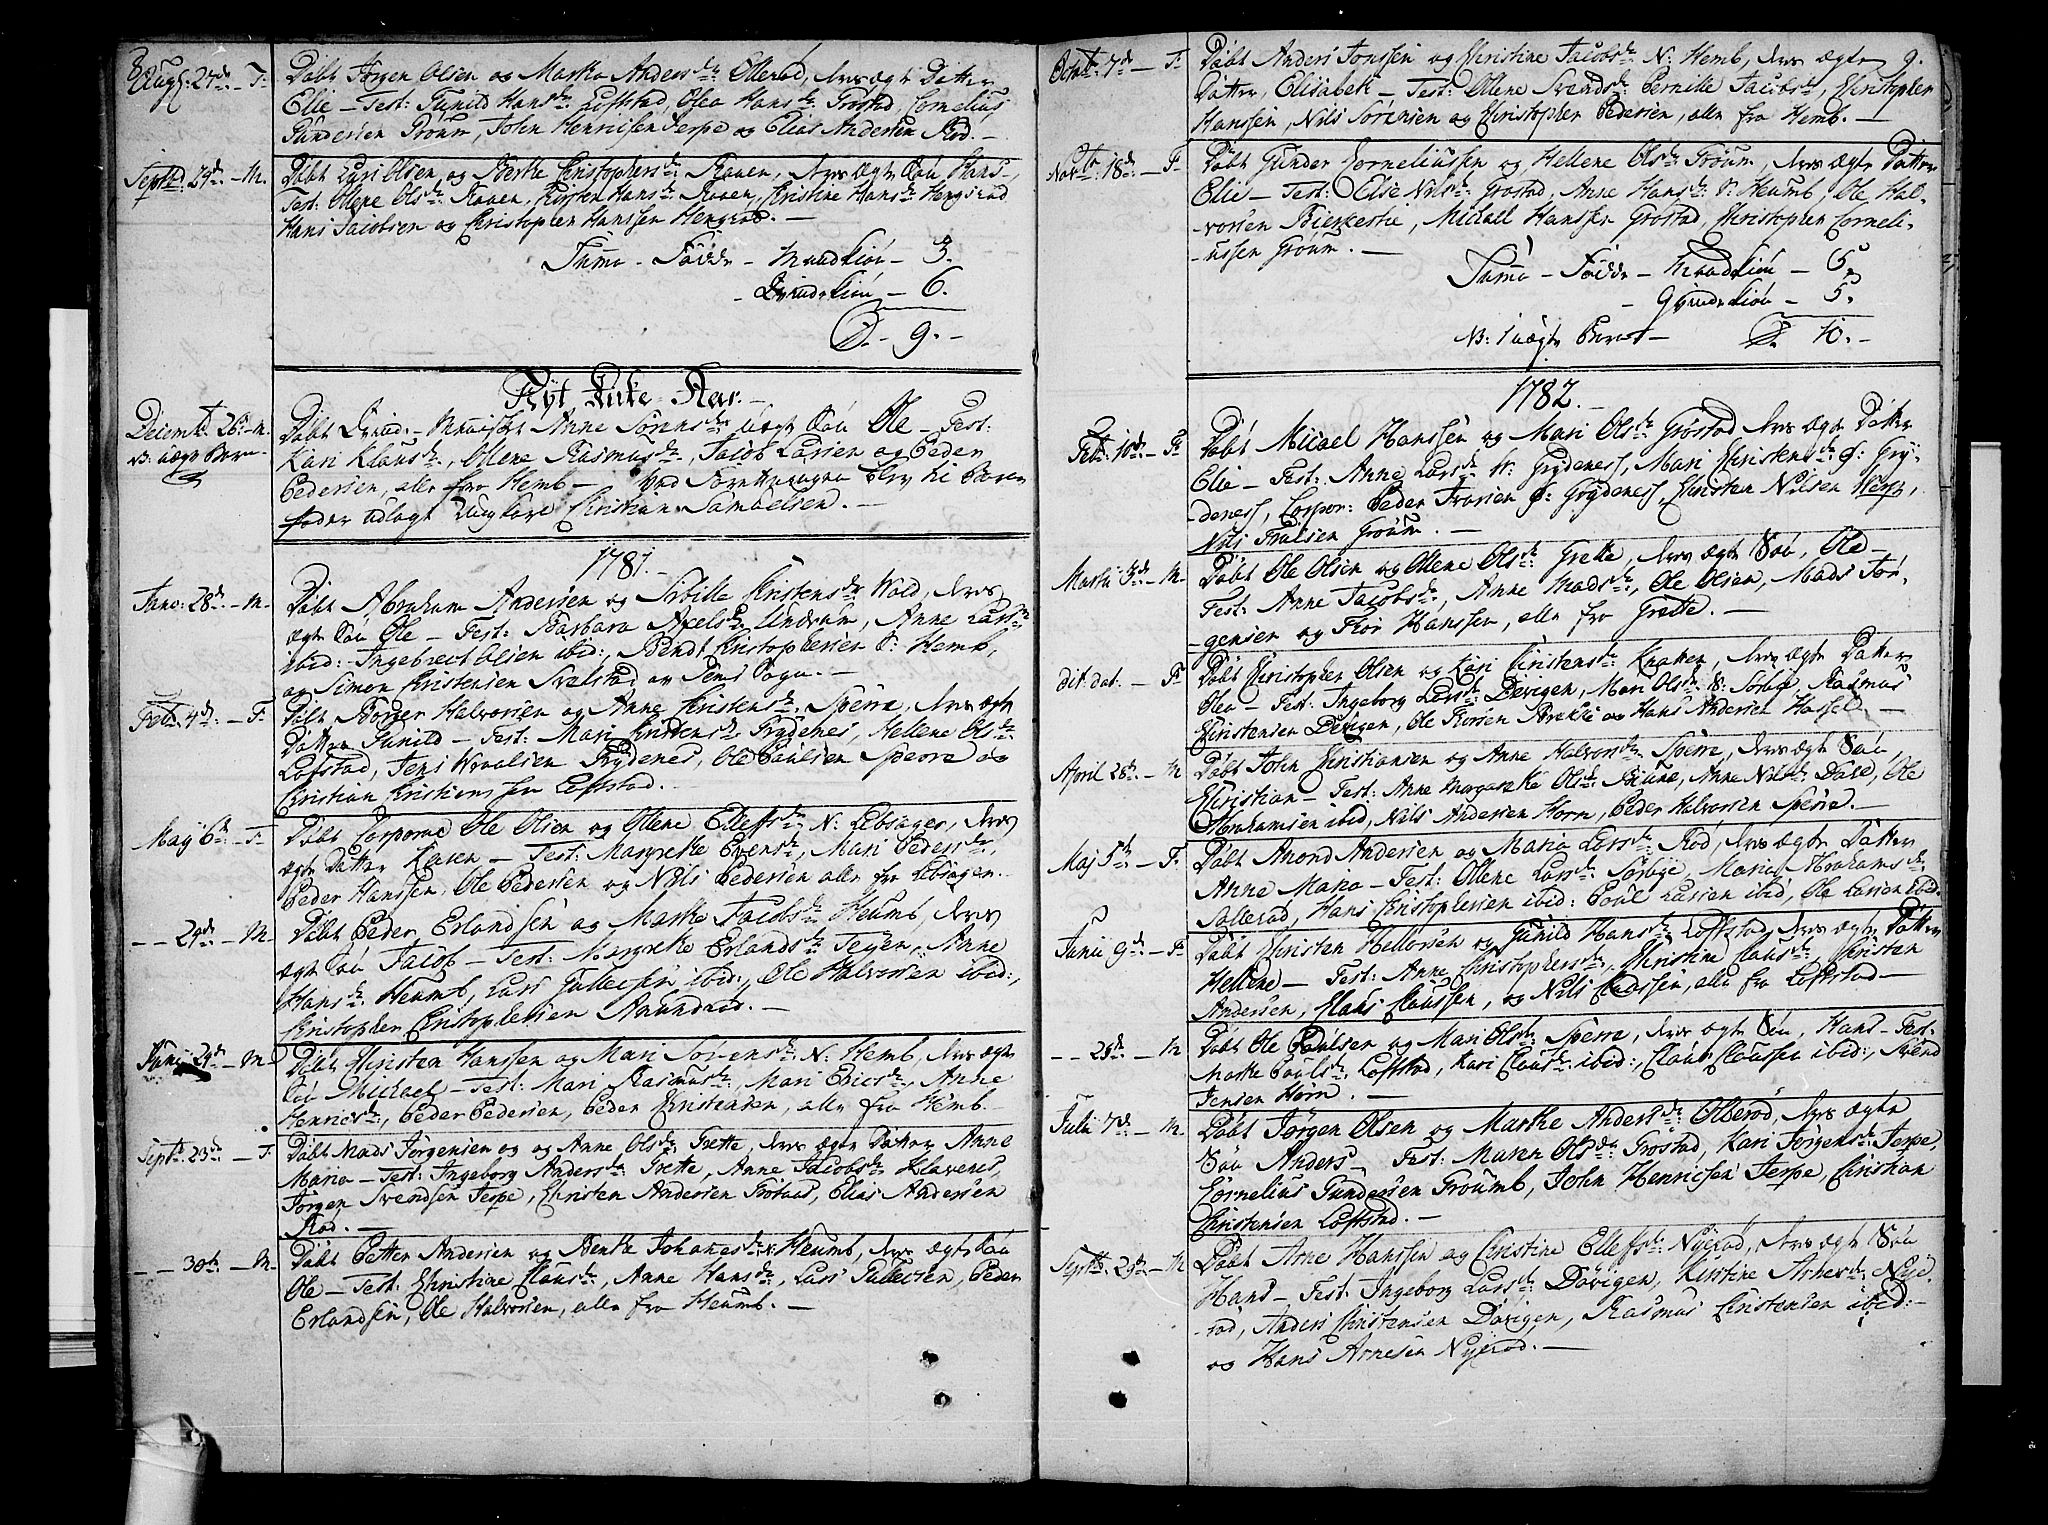 8.
Aug: 27de – F. Døbt Jørgen Olsen og Marthe Andersdr Ollerød, deres ægte Datter
Elie – Test: Gunild Hansdr Loftstad, Olea Hansdr Grostad, Cornelius
Gundersen Grøum, John Henricsen Jerpe og Elias Andersen Rød. –
Septbr 24de – M. Døbt Lars Olsen og Berthe Christophersdr Raaen, deres ægte Søn Hans –
Test: Ollene Olsdr Raaen, Kirsten Hansdr Raaen, Christine Hansdr Hengsrød
Hans Jacobsen og Christopher Hanssen Hengsrød. –
Suma – Fødde – Mandkiøn – 3.
– Qvindekiøn – 6.
S. – 9. –
Nyt Kirke-Aar. –
Decembr 26de – M. Døbt Qvind-Mennisket Anne Sørensdr uægte Søn Ole – Test:
NB: uægte Barn – Kari Klausdr, Ollene Rasmusdr, Jacob Larsen og Peder
Pedersen, alle fra Hemb – Ved blev til Barne-
fader udlagt Ungkarl Christian Samuelsen. –
1781.
Janv: 28de – M. Døbt Abraham Andersen og Sibille Christensdr Wold, deres
ægte Søn Ole – Test: Barbara Axelsdr Undrum, Anne Larsdr
ibid: Ingebrect Olsen ibid:, Bendt Christophersen S: Hemb,
og Simon Christensen Svelstad av Sems Sogn. –
Febr 4de – F. Døbt Borger Halvorsen og Anne Christensdr Sperre, deres ægte
Datter Gunild – Test: Mari Christensdr Grydenes, Hellene Olsdr
Lofstad, Jens Wraalsen Grydenes, Ole Poulsen Sperre og
Christian Christiensen Loftstad. –
May 6te – F. Døbt Corporal Ole Olsen og Ollene Ellefsdr N: Lebsager, deres
ægte Datter Karen – Test: Margrethe Evensdr, Mari Pedersdr,
Peder Hanssen, Ole Pedersen og Nils Pedersen alle fra Lebsager.
– – 24de – M. Døbt Peder Erlandsen og Marthe Jacobsdr Heumb, deres
ægte Søn Jacob – Test: Margrethe Erlandsdr Teyen, Anne
Hansdr Heumb, Lars Gullecsen ibid:, Ole Halvorsen ibid:,
Christopher Christophersen Amundrød. –
Junij 24de – M. Døbt Christen Hanssen og Mari Sørensdr N: Hemb, deres ægte
Søn Michael – Test: Mari Rasmusdr, Mari Ericsdr, Anne
Henricsdr, Peder Pedersen, Peder Christensen, alle fra Hemb.
Septbr 23de – F. Døbt Mads Jørgensen og og Anne Olsdr Grette, deres ægte Datter Anne
Maria – Test: Ingeborg Andersdr Grette, Anne Jacobsdr Klavenes,
Jørgen Svendsen Jerpe, Christen Andersen , Elias Andersen
Rød. –
– – 30te – M. Døbt Petter Andersen og Benthe Johanesdr N: Heumb, deres ægte Søn
Ole – Test: Christine Clausdr, Anne Hansdr, Lars Gullecsen, Peder
Erlandsen, Ole Halvorsen, alle fra Heumb. –
9.
Octobr: 7de – F. Døbt Anders Jonssen og Christine Jacobsdr N: Hemb, deres ægte
Datter, Elisabeth – Test: Ollene Svendsdr Pernille Jacobsdr, Christopher
Hanssen, Nils Sørensen og Christopher Pedersen, alle fra Hemb. –
Novbr 18de – F. Døbt Gunder Corneliussen og Hellene Olsdr Grøum, deres ægte Datter
Elie – Test: Else Nilsdr Grostad, Anne Hansdr S: Heumb, Ole Hal-
vorsen , Michell Hanssen Grostad, Christopher Corneli-
-ussen Grøum. –
Suma – Fødde – Mandkiøn – 5.
– Qvindekiøn – 5.
NB: 1 uægte Barn – S. 10. –
1782. –
Febr: 10de – F. Døbt Micael Hanssen og Mari Olsdr Grostad deres ægte Datter
Elie – Test: Anne Larsdr W: Grydenes, Mari Christensdr S: Gry-
denes, Corpor: Peder Frorsen S: Grydenes, Christen Nilsen ,
Nils Grøum. –
Martii 3de – M. Døbt Ole Olsen og Ollene Olsdr Grette, deres ægte Søn, Ole –
Test: Anne Jacobsdr, Anne Madsdr, Ole Olsen, Mads Jør-
-gensen og Thor Hanssen, alle fra Grette. –
dit: dat. – F. Døbt Christopher Olsen og Kari Christensdr Knatten, deres ægte Datter
Olea – Test: Ingeborg Larsdr Døvigen, Mari Olsdr S: Sørbye, Rasmus
Christensen Døvigen, Ole Thorsen Brekke og Hans Andersen Hassel. –
April 28de – M. Døbt John Christiansen og Anne Halvorsdr Sperre, deres ægte Søn,
Christian – Test: Anne Margarethe Olsdr , Anne Nilsdr , Ole
Abrahamsen ibid, Nils Andersen Horn, Peder Halvorsen Sperre. –
Maj 5te – F. Døbt Amond Andersen og Maria Larsdr Rød, deres ægte Datter
Anne Maria – Test: Ollene Larsdr Sørbye, Maria Abrahamsdr
Sollerød, Hans Christophersen ibid: Poul Larsen ibid, Ole Larsen ibid
Junii 9de – F. Døbt Christen Hellorsen og Gunild Hansdr Loftstad, deres ægte Datter
Hellene – Test: Anne Christophersdr, Christine Clausdr, Christen
Andersen, Hans Claussen, og Nils Claussen, alle fra Loftstad –
– – 23de – M Døbt Ole Poulsen og Mari Olsdr Sperre, deres ægte Søn, Hans – Test:
Marthe Poulsdr Loftstad, Kari Clausdr ibid:, Claus Claussen ibid:, Svend
Jensen Horn. –
Julii 7de – M. Døbt Jørgen Olsen og Marthe Andersdr Olberød, deres ægte
Søn Anders – Test: Maren Olsdr Grostad, Kari Jørgensdr Jerpe,
Cornelius Gundersen Groumb, John Henricsen Jerpe, Christian
Christensen Loftstad. –
Septbr 29de – M Døbt Arne Hanssen og Christine Ellefsdr Nyerød, deres ægte Søn
Hans – Test: Ingeborg Larsdr Døvigen, Kirstine Arnesdr Nye-
-rød, Anders Christensen Døvigen, Rasmus Christensen ibid: –
og Hans Arnesen Nyerød. –